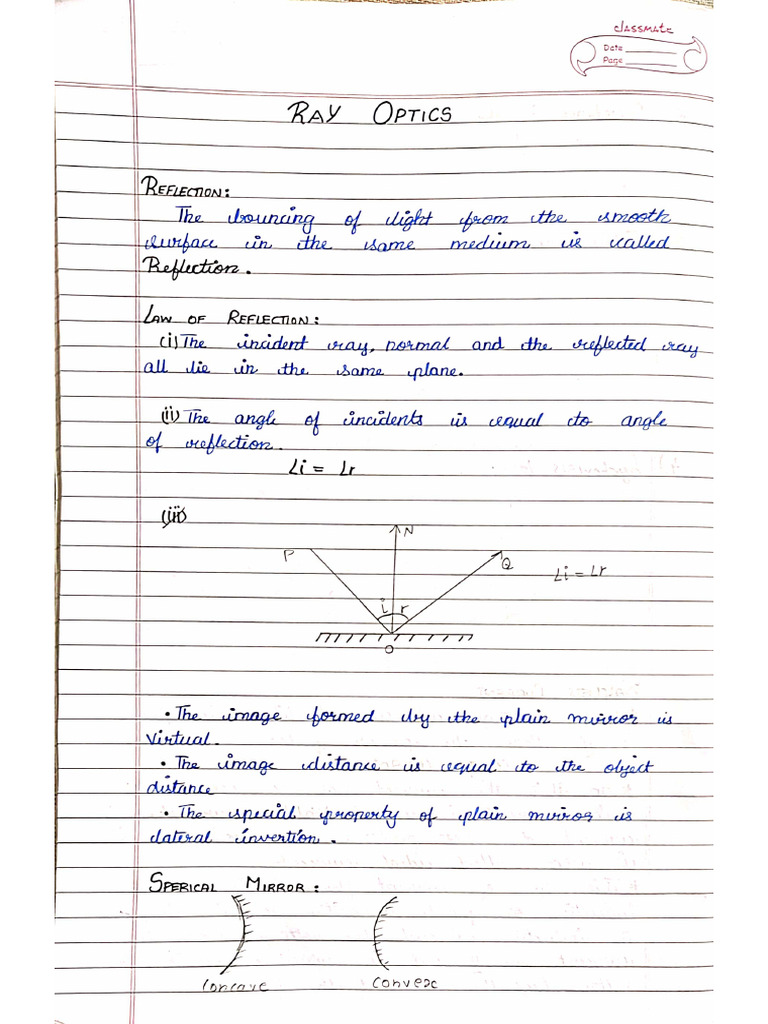 classmate
Date
Page
RAY OPTICS
REFLECTION:
The bouncing of light from the smooth
surface in the same medium is called
Reflection.
LAW OF REFLECTION:
(i) The incident ray, normal and the reflected ray
all lie in the same plane.
(ii) The angle of incidents is equal to angle
of reflection.
∠i = ∠r
(iii)
N
P
Q
∠i = ∠r
i r
O
• The image formed by the plain mirror is
virtual.
• The image distance is equal to the object
distance
• The special property of plain mirror is
lateral invertion.
SPERICAL MIRROR:
Concave
Convex